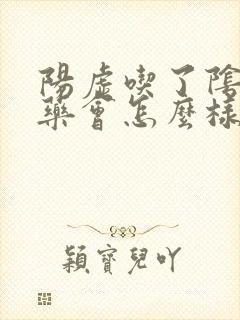 陽虛喫了陰
藥會怎麼樣
穎寶兒吖